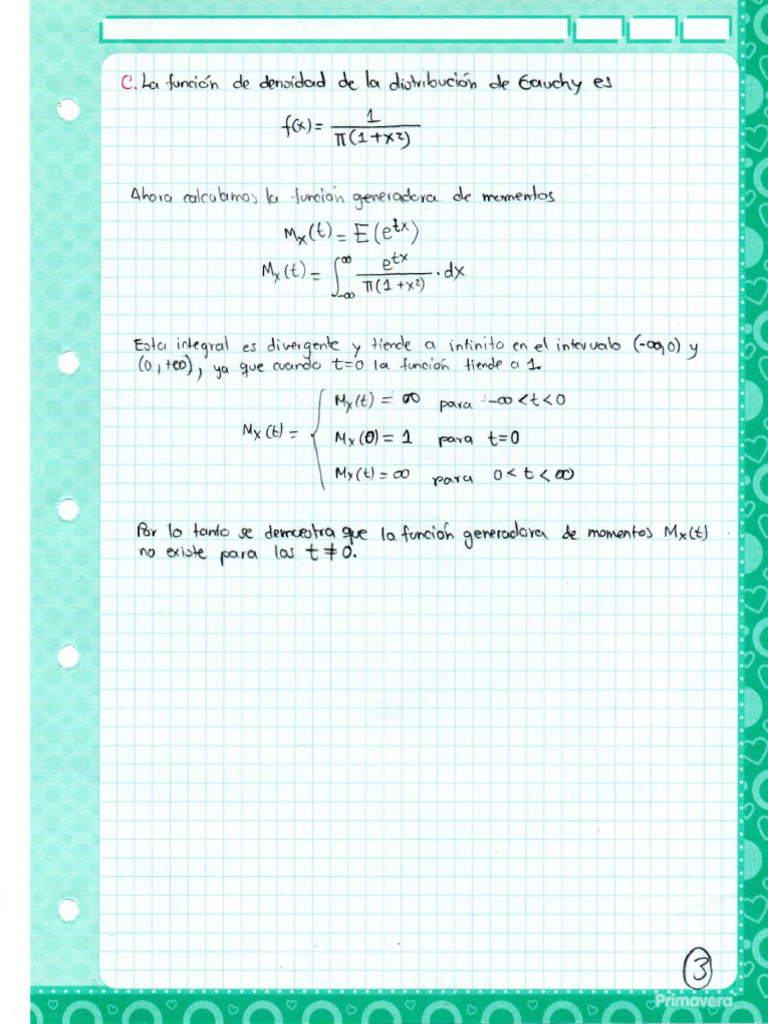 C. La función de densidad de la distribución de Cauchy es
f(x) = 1 / π(1+x²)
Ahora calculamos la función generadora de momentos
Mx(t) = E(e^tx)
Mx(t) = ∫_-∞^∞ e^tx / π(1+x²) · dx
Esta integral es divergente y tiende a infinito en el intervalo (-∞,0) y
(0,+∞), ya que cuando t=0 la función tiende a 1.
Mx(t) = {
Mx(t) = ∞ para -∞<t<0
Mx(0) = 1 para t=0
Mx(t) = ∞ para 0<t<∞
Por lo tanto se demuestra que la función generadora de momentos Mx(t)
no existe para las t≠0.
3
Primavera